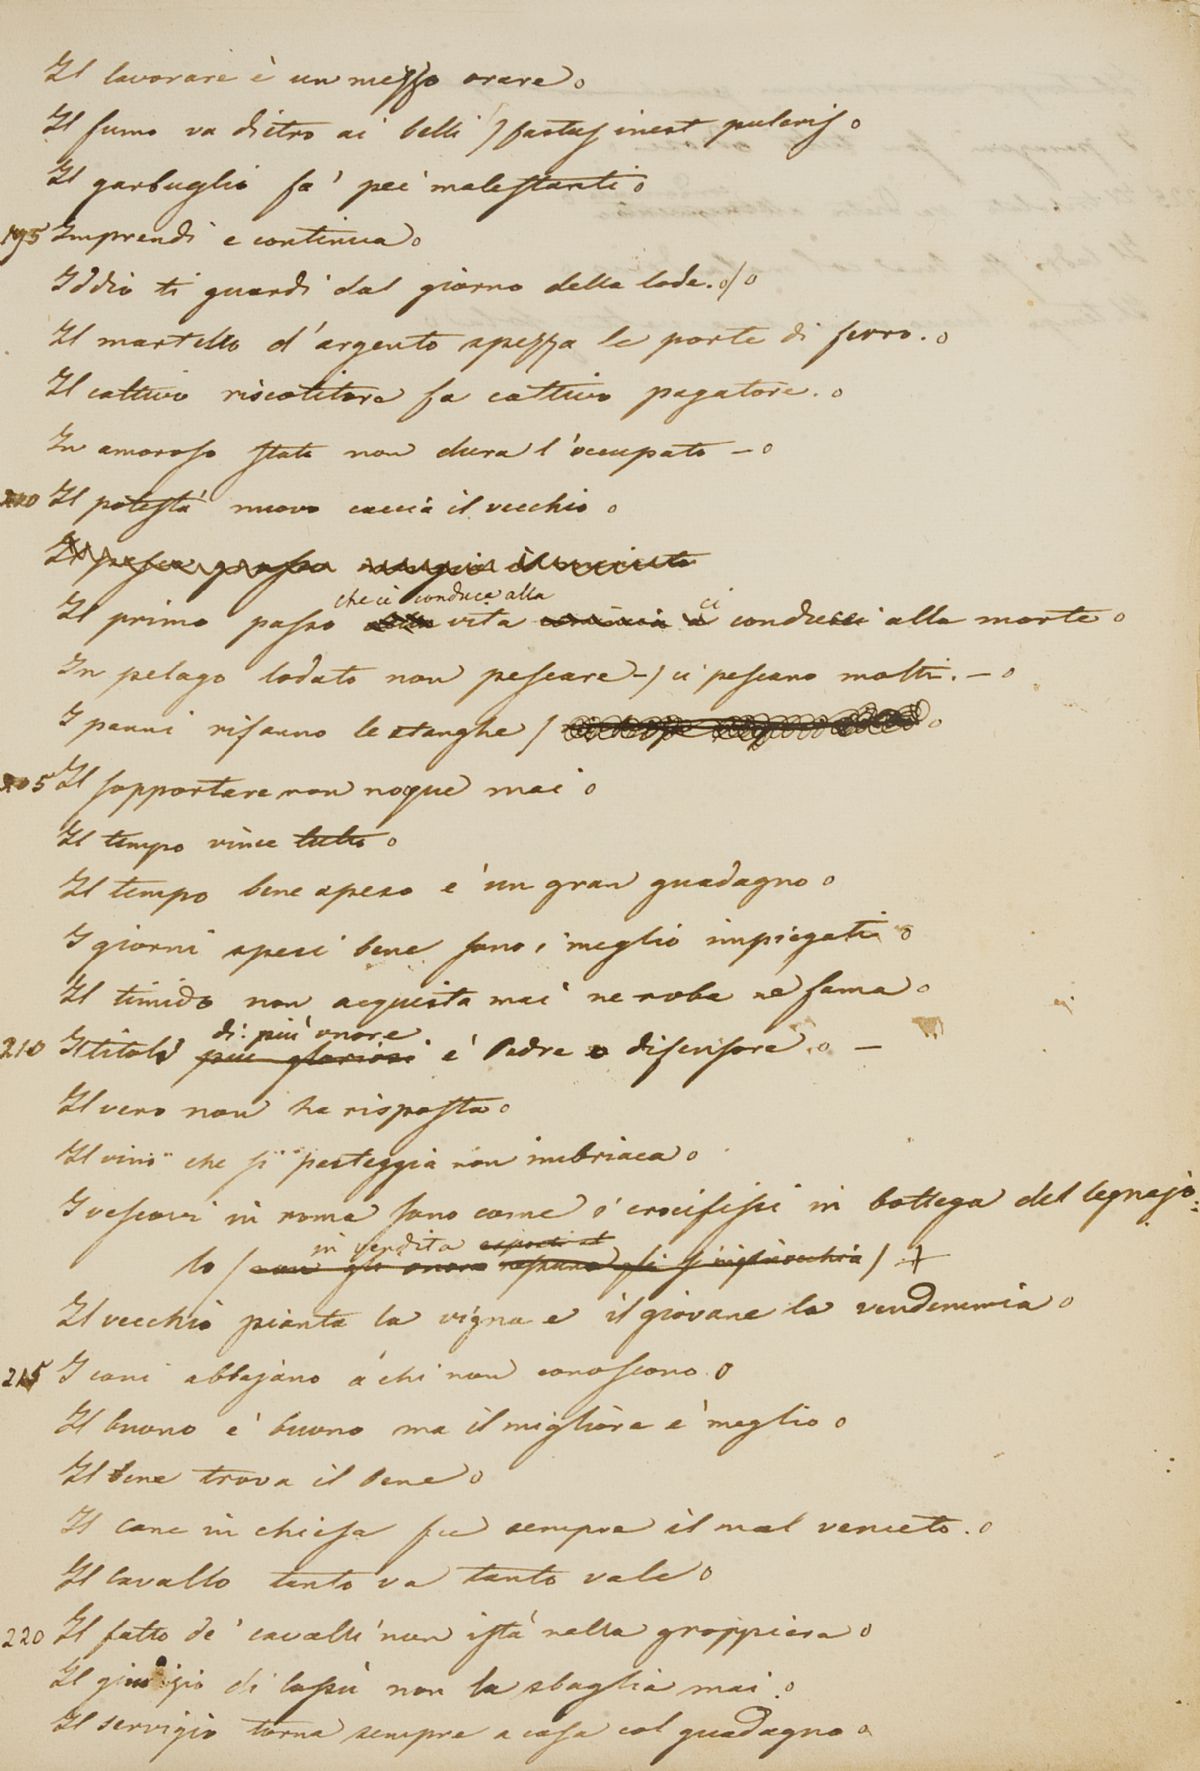 Il lavorare è un mezzo orare o
Il fumo va dietro ai belli / fastus inest pulcris o
Il garbuglio fa' pei malestanti o
195 Imprendi e continua o
Iddio ti guardi dal giorno della lode. o/o
Il martello d'argento spezza le porte di ferro. o
Il cattivo riscotitore fa cattivo pagatore. o
In amoroso stato non dura l'occupato – o
200 Il potestà nuovo caccia il vecchio o
Il pesce grosso mangia il minuto
che ci conduce alla ci
Il primo passo vita conduce alla morte o
In pelago lodato non pescare –/ ci pescano molti. – o
I panni rifanno le stanghe / o
205 Il sopportare non noque mai o
Il tempo vince tutto o
Il tempo bene speso e' un gran guadagno o
I giorni spesi bene sono i meglio impiegati o
Il timido non acquista mai ne roba ne fama o
di più onore
210 I titoli più gloriosi è Padre e difensore. o –
Il vero non ha risposta o
Il vino che si pasteggia non imbriaca o
I vescovi in roma sono come i crocifissi in bottega del legnajo:
in vendita esposti al
lo / non gli onora nessuno gli s'inginocchia / +
Il vecchio pianta la vigna e il giovane la vendemmia o
215 I cani abbajano a chi non conoscono o
Il buono e' buono ma il migliore e' meglio o
Il bene trova il bene o
Il cane in chiesa fu sempre il mal venuto. o
Il cavallo tanto va tanto vale o
220 Il fatto de' cavalli non istà nella groppiera o
Il giudizio di lassù non la sbaglia mai. o
Il servigio torna sempre a casa col guadagno o